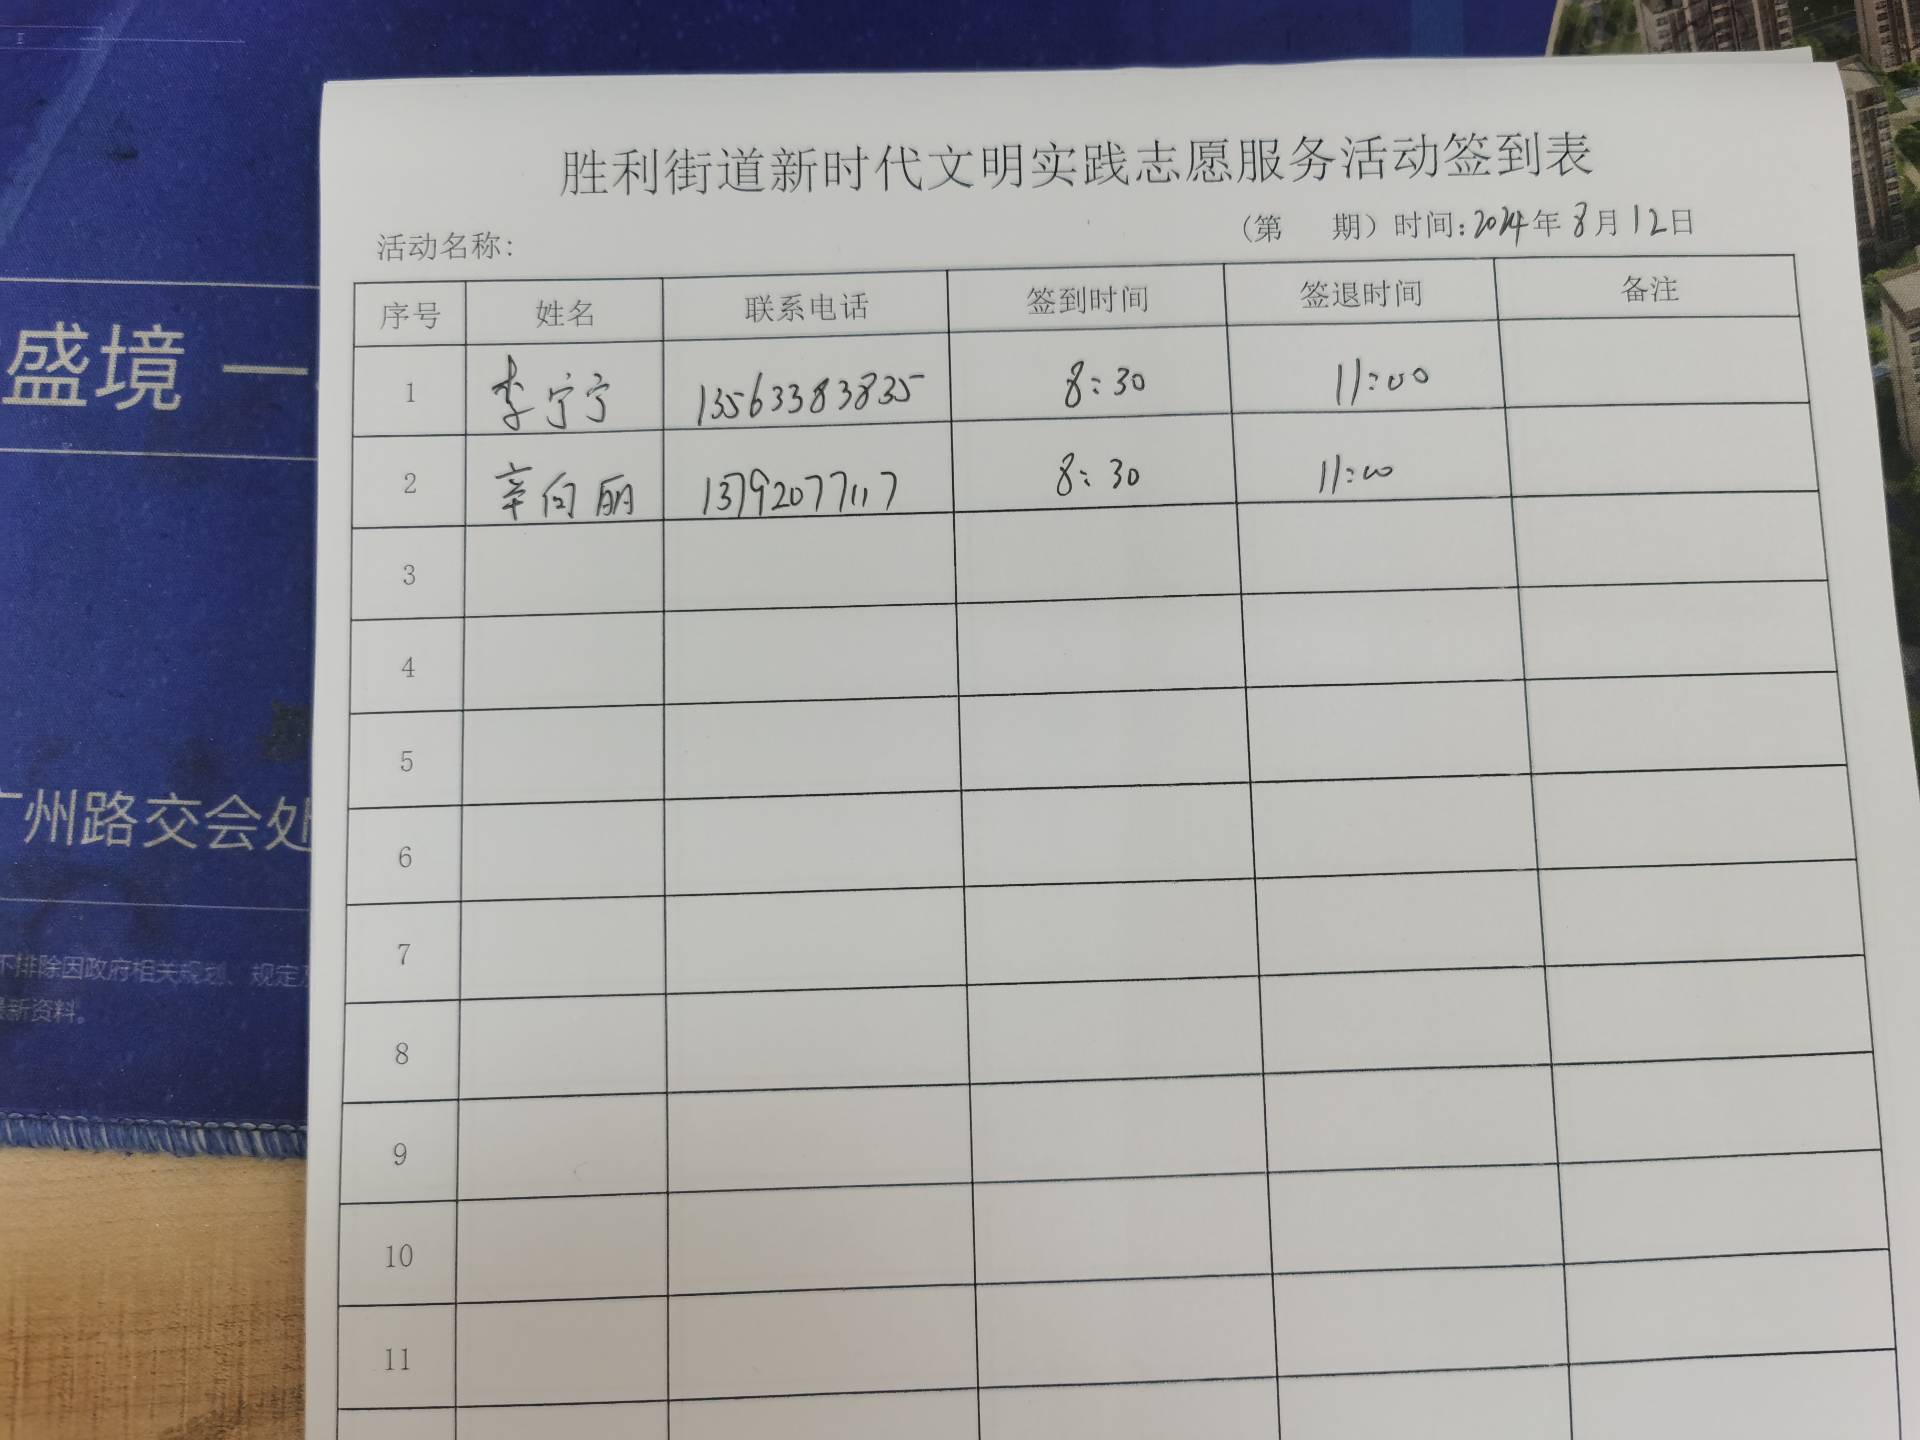 胜利街道新时代文明实践志愿服务活动签到表
活动名称: (第 期) 时间:2024年8月12日
序号 姓名 联系电话 签到时间 签退时间 备注
1 李宁宁 13563383835 8:30 11:00
2 辛向丽 13792077117 8:30 11:00
3
4
5
6
7
8
9
10
11
盛境 一
广州路交会处
不排除因政府相关规划、规定及
最新资料。